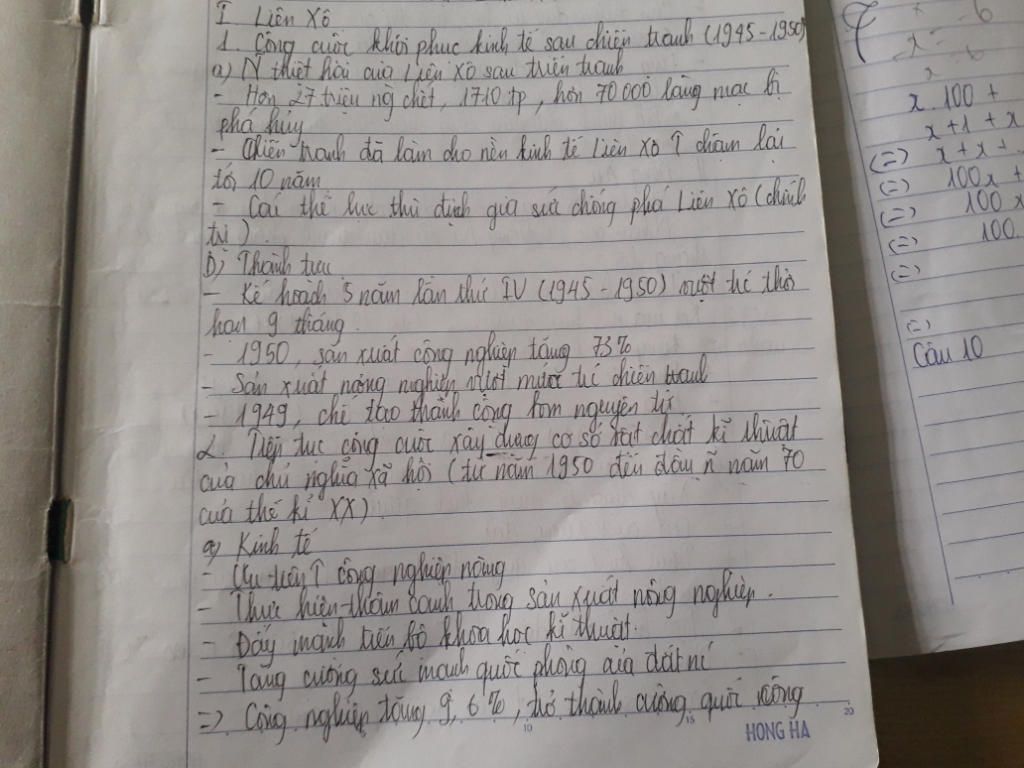 I Liên Xô
1. Công cuộc khôi phục kinh tế sau chiến tranh (1945-1950)
a) N thiệt hại của Liên Xô sau triến tranh
- Hơn 27 triệu ng chết, 1710 tp, hơn 70 000 làng mạc bị
phá hủy
- Chiến tranh đã làm cho nền kinh tế Liên Xô ↑ chậm lại
tới 10 năm
- Các thế lực thù địch gia sức chống phá Liên Xô (chính
trị)
b) Thành tựu
- Kế hoạch 5 năm lần thứ IV (1945-1950) vượt trc thời
hạn 9 tháng
- 1950, sản xuất công nghiệp tăng 73%
- Sản xuất nông nghiệp vượt mức trc chiến tranh
- 1949, chế tạo thành công bom nguyên tử
2. Tiếp tục công cuộc xây dựng cơ sở vật chất kĩ thuật
của chủ nghĩa xã hội (từ năm 1950 đến đầu ñ năm 70
của thế kỉ XX)
a) Kinh tế
- Ưu tiên ↑ công nghiệp nặng
- Thực hiện thâm canh trong sản xuất nông nghiệp.
- Đẩy mạnh tiến bộ khoa học kĩ thuật.
- Tăng cường sức mạnh quốc phòng của đất nc
=> Công nghiệp tăng 9,6%, trở thành cường quốc công
10 15 20
HONG HA
x 100 +
x+1 + x
(=) x + x +
(=) 100x +
(=) 100 x
(=) 100.
(=)
(=)
Câu 10